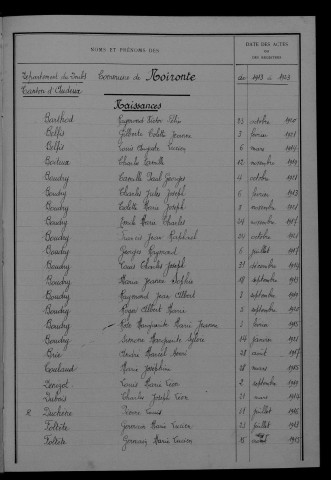 NOMS ET PRÉNOMS DES
DATE DES ACTES
OU
DES REGISTRES
Département du Doubs Commune de Noironte de 1913 à 1923
Canton d'Audeux
Naissances
Barthod Raymond Victor 23 octobre 1920
Belfis Gilberte Colette Jeanne 3 février 1921
Belfis Louis Auguste Lucien 6 mars 1914
Berteux Charles Camille 12 novembre 1914
Boudry Camille Paul Georges 4 octobre 1921
Boudry Charles Jules Joseph 6 février 1913
Boudry Colette Marie Joseph 8 novembre
Boudry Louis Marie Charles 24 novembre 1917
Boudry Francis Jean Raphaël octobre
Boudry Georges Raymond 6 juillet
Boudry Louis Charles Joseph 31 décembre 1914
Boudry Marie Jeanne Sophie 18 septembre
Boudry Raymond Jean Albert 2 septembre
Boudry Roger Albert Marie 5 septembre 1920
Boudry Rose Marguerite Marie Jeanne 5 février
Boudry Simone Marguerite 14 janvier
Brie Marcel 28 août 1917
Coulaud Marie Joséphine 28 mars
Louis Marie Léon 2 septembre 1919
Dubois Charles Joseph Léon 21 mars 1914
Duchene Pierre Louis 21 juillet 1916
Foltête Germain Marie Lucien 23 juillet
Foltête Germain Marie Lucien 15 1913